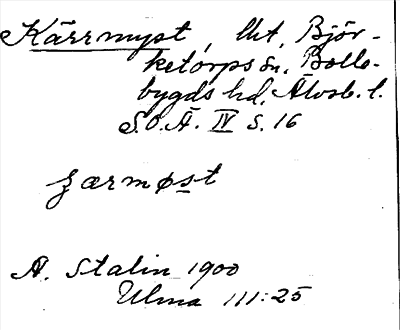 Kärrmyst, lht, Björ-
ketorps sn, Bolle-
bygds hd, Älvsb. l.
S.O.Ä. IV s. 16
ʒærmøst
A. Stalin 1900
Ulma 111:25